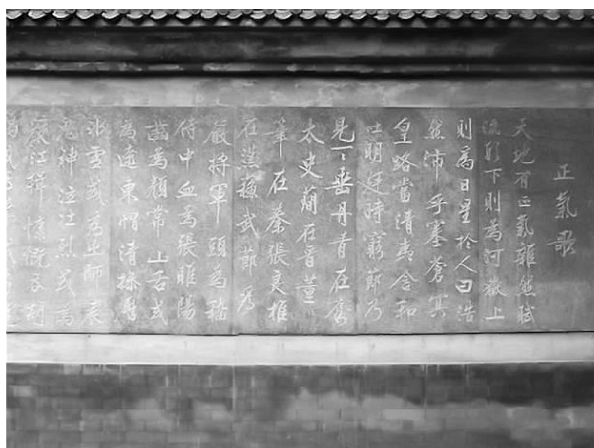 正氣歌
天地有正氣雜然賦
流形下則為河嶽上
則為日星於人曰浩
然沛乎塞蒼冥
皇路當清夷含和
吐明廷時窮節乃
見一一垂丹青在齊
太史簡在晉董
筆在秦張良椎
在漢蘇武節為
嚴將軍頭為嵇
侍中血為張睢陽
齒為顏常山舌或
為遼東帽清操厲
冰雪或為出師表
鬼神泣壯烈或為
渡江楫慷慨吞胡